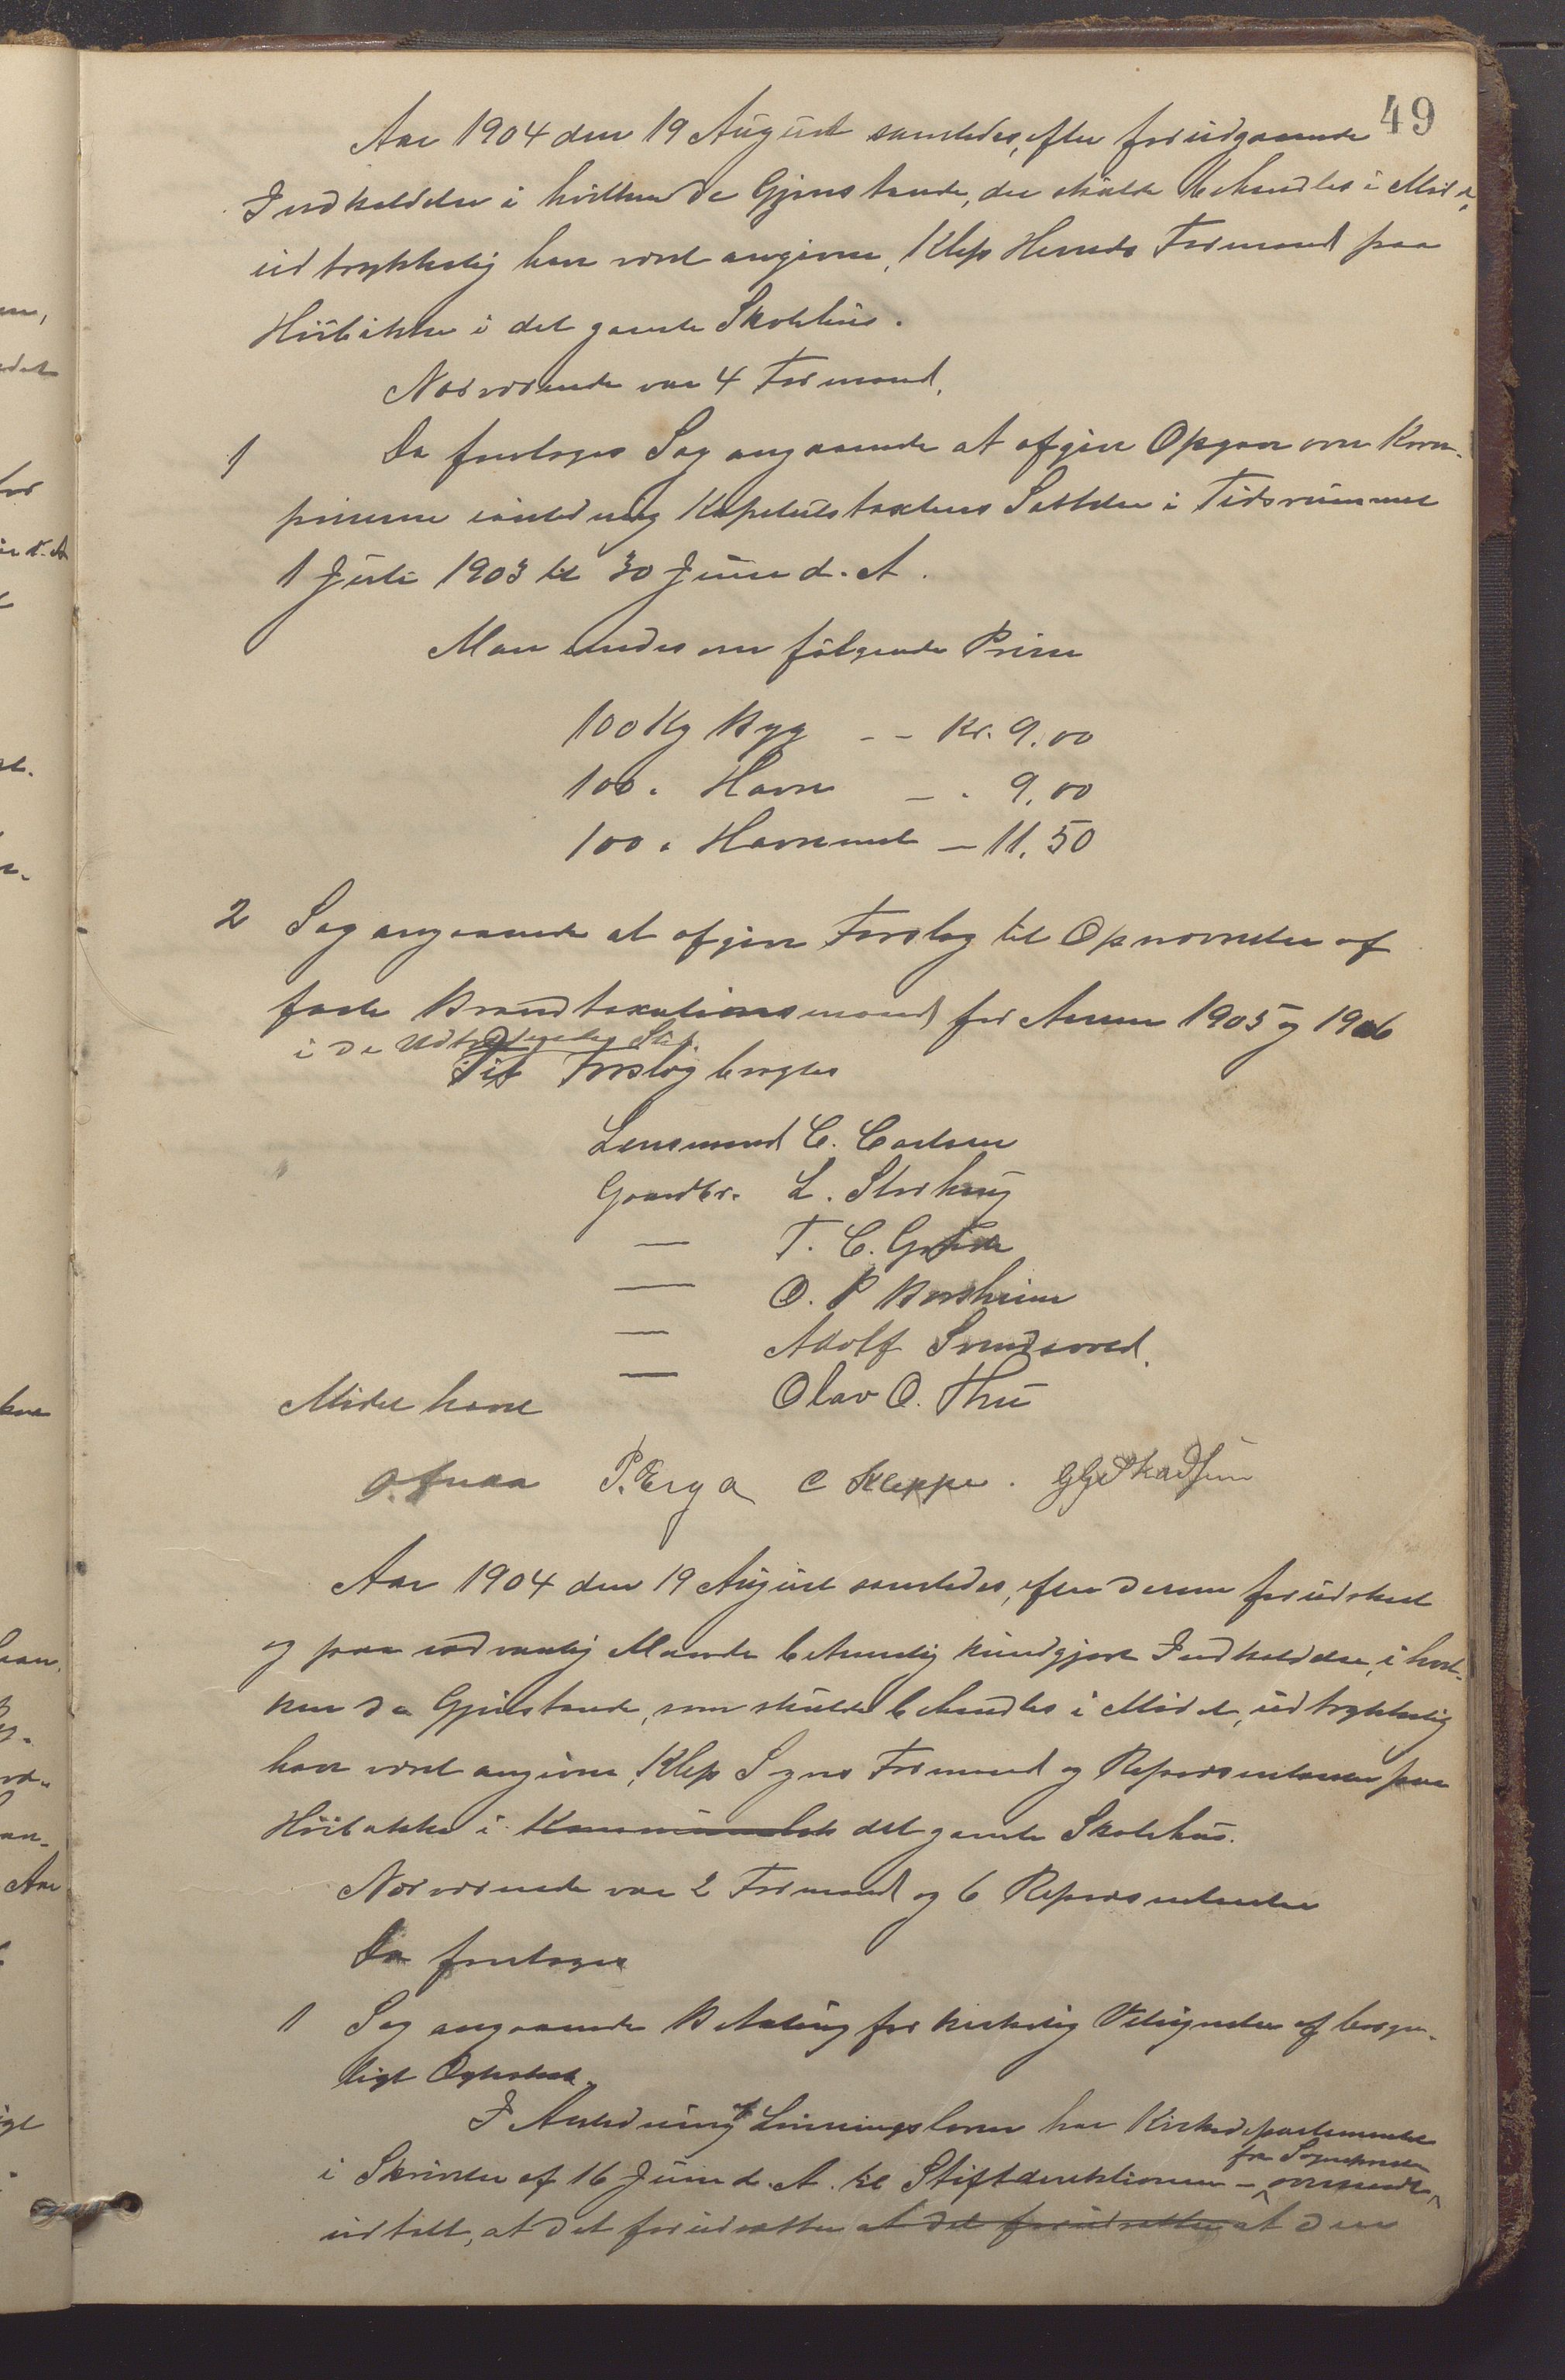 49
Aar 1904 den 19 August samledes, efter forudgaaende
Indkaldelse i hvilken de Gjenstande, der skulde behandles i Mødet,
udtrykkelig har været angivne, Klep Herreds Formænd paa
Høibakke i det gamle Skolehus.
Nærværende var 4 Formænd.
1 Da foretoges Sag angaaende at afgive Opgave over Korn-
priserne i anledning Kapitelstaxtens Sættelse i Tidsrummet
1 Juli 1903 til 30 Juni d. A.
Man enedes om følgende Priser
100 Kg Byg - - Kr. 9.00
100 " Havre - " 9.00
100 " Havremel - 11.50
2 Sag angaaende at afgive Forslag til Opnævnelse af
faste Brandtaxationsmænd for Aarene 1905 og 1906
i de
Til Forslag bragtes
Lensmand C. Carlsen
Gaardbr. L. Storhaug
— T. C. Grude
— O. P Borsheim
— Adolf Svendsvoll.
— Olav O. Thu
Mødet hævet
P. Erga C Kleppe. GGSkadsem
Aar 1904 den 19 August samledes, efter dertil forudskeet
og paa sædvanlig Maade behørig kundgjort Indkaldelse, i hvil-
ken de Gjenstande, som skulde behandles i Mødet, udtrykkelig
har været angivne, Klep Sogns Formænd og Repræsentanter paa
Høibakke i Kommunelok det gamle Skolehus.
Nærværende var 2 Formænd og 6 Repræsentanter
Da foretoges
1 Sag angaaende Betaling for kirkelig Velsignelse af borger-
ligt Ægteskab.
I Anledning af Lønningsloven har Kirkedepartementet
i Skrivelse af 16 Juni d. A. til Stiftdirektionen - oversendt
fra Sognepresten
udtalt, at det forudsætter at det forudsætter at den